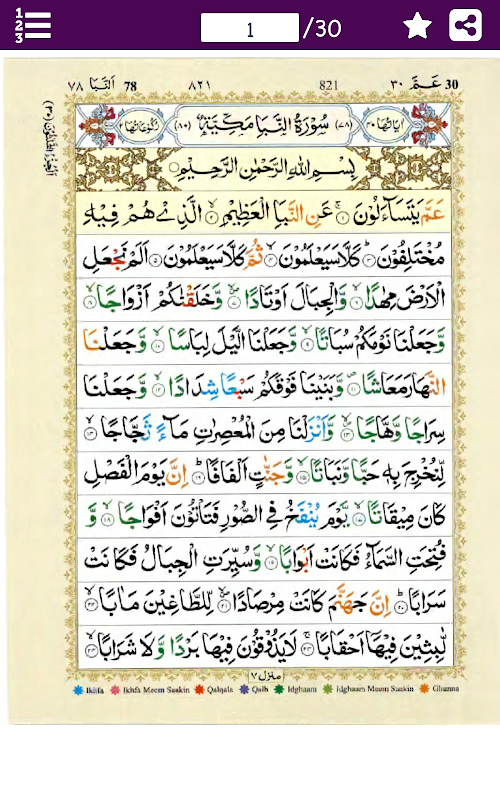 1 /30
اَلنَّبَا ٧٨ 78 ٨٢١ 821 عَمَّ ٣٠ 30
اٰيَاتُهَا ٤٠ (٧٨) سُوْرَةُ النَّبَاِ مَكِّيَّةٌ (٨٠) رُكُوْعَاتُهَا ٢
بِسْمِ اللهِ الرَّحْمٰنِ الرَّحِيْمِ
عَمَّ يَتَسَآءَلُوْنَ ۚ﴿١﴾ عَنِ النَّبَاِ الْعَظِيْمِ ۙ﴿٢﴾ الَّذِيْ هُمْ فِيْهِ
مُخْتَلِفُوْنَ ؕ﴿٣﴾ كَلَّا سَيَعْلَمُوْنَ ۙ﴿٤﴾ ثُمَّ كَلَّا سَيَعْلَمُوْنَ ﴿٥﴾ اَلَمْ نَجْعَلِ
الْاَرْضَ مِهٰدًا ۙ﴿٦﴾ وَّالْجِبَالَ اَوْتَادًا ۪ۙ﴿٧﴾ وَّخَلَقْنٰكُمْ اَزْوَاجًا ۙ﴿٨﴾
وَّجَعَلْنَا نَوْمَكُمْ سُبَاتًا ۙ﴿٩﴾ وَّجَعَلْنَا الَّيْلَ لِبَاسًا ۙ﴿١٠﴾ وَّجَعَلْنَا
النَّهَارَ مَعَاشًا ۪﴿١١﴾ وَّبَنَيْنَا فَوْقَكُمْ سَبْعًا شِدَادًا ۙ﴿١٢﴾ وَّجَعَلْنَا
سِرَاجًا وَّهَّاجًا ۪ۙ﴿١٣﴾ وَّاَنْزَلْنَا مِنَ الْمُعْصِرٰتِ مَآءً ثَجَّاجًا ۙ﴿١٤﴾
لِّنُخْرِجَ بِهٖ حَبًّا وَّنَبَاتًا ۙ﴿١٥﴾ وَّجَنّٰتٍ اَلْفَافًا ؕ﴿١٦﴾ اِنَّ يَوْمَ الْفَصْلِ
كَانَ مِيْقَاتًا ۙ﴿١٧﴾ يَّوْمَ يُنْفَخُ فِي الصُّوْرِ فَتَاْتُوْنَ اَفْوَاجًا ۙ﴿١٨﴾ وَّ
فُتِحَتِ السَّمَآءُ فَكَانَتْ اَبْوَابًا ۙ﴿١٩﴾ وَّسُيِّرَتِ الْجِبَالُ فَكَانَتْ
سَرَابًا ؕ﴿٢٠﴾ اِنَّ جَهَنَّمَ كَانَتْ مِرْصَادًا ۪ۙ﴿٢١﴾ لِّلطَّاغِيْنَ مَاٰبًا ۙ﴿٢٢﴾
لّٰبِثِيْنَ فِيْهَآ اَحْقَابًا ۚ﴿٢٣﴾ لَا يَذُوْقُوْنَ فِيْهَا بَرْدًا وَّلَا شَرَابًا ۙ﴿٢٤﴾
منزل ٧
Ikhfa Ikhfa Meem Saakin Qalqala Qalb Idghaam Idghaam Meem Saakin Ghunna